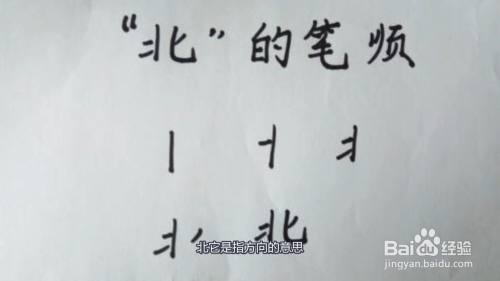 “北”的笔顺
北
北它是指方向的意思
Baidu经验
jingyan.baidu.com